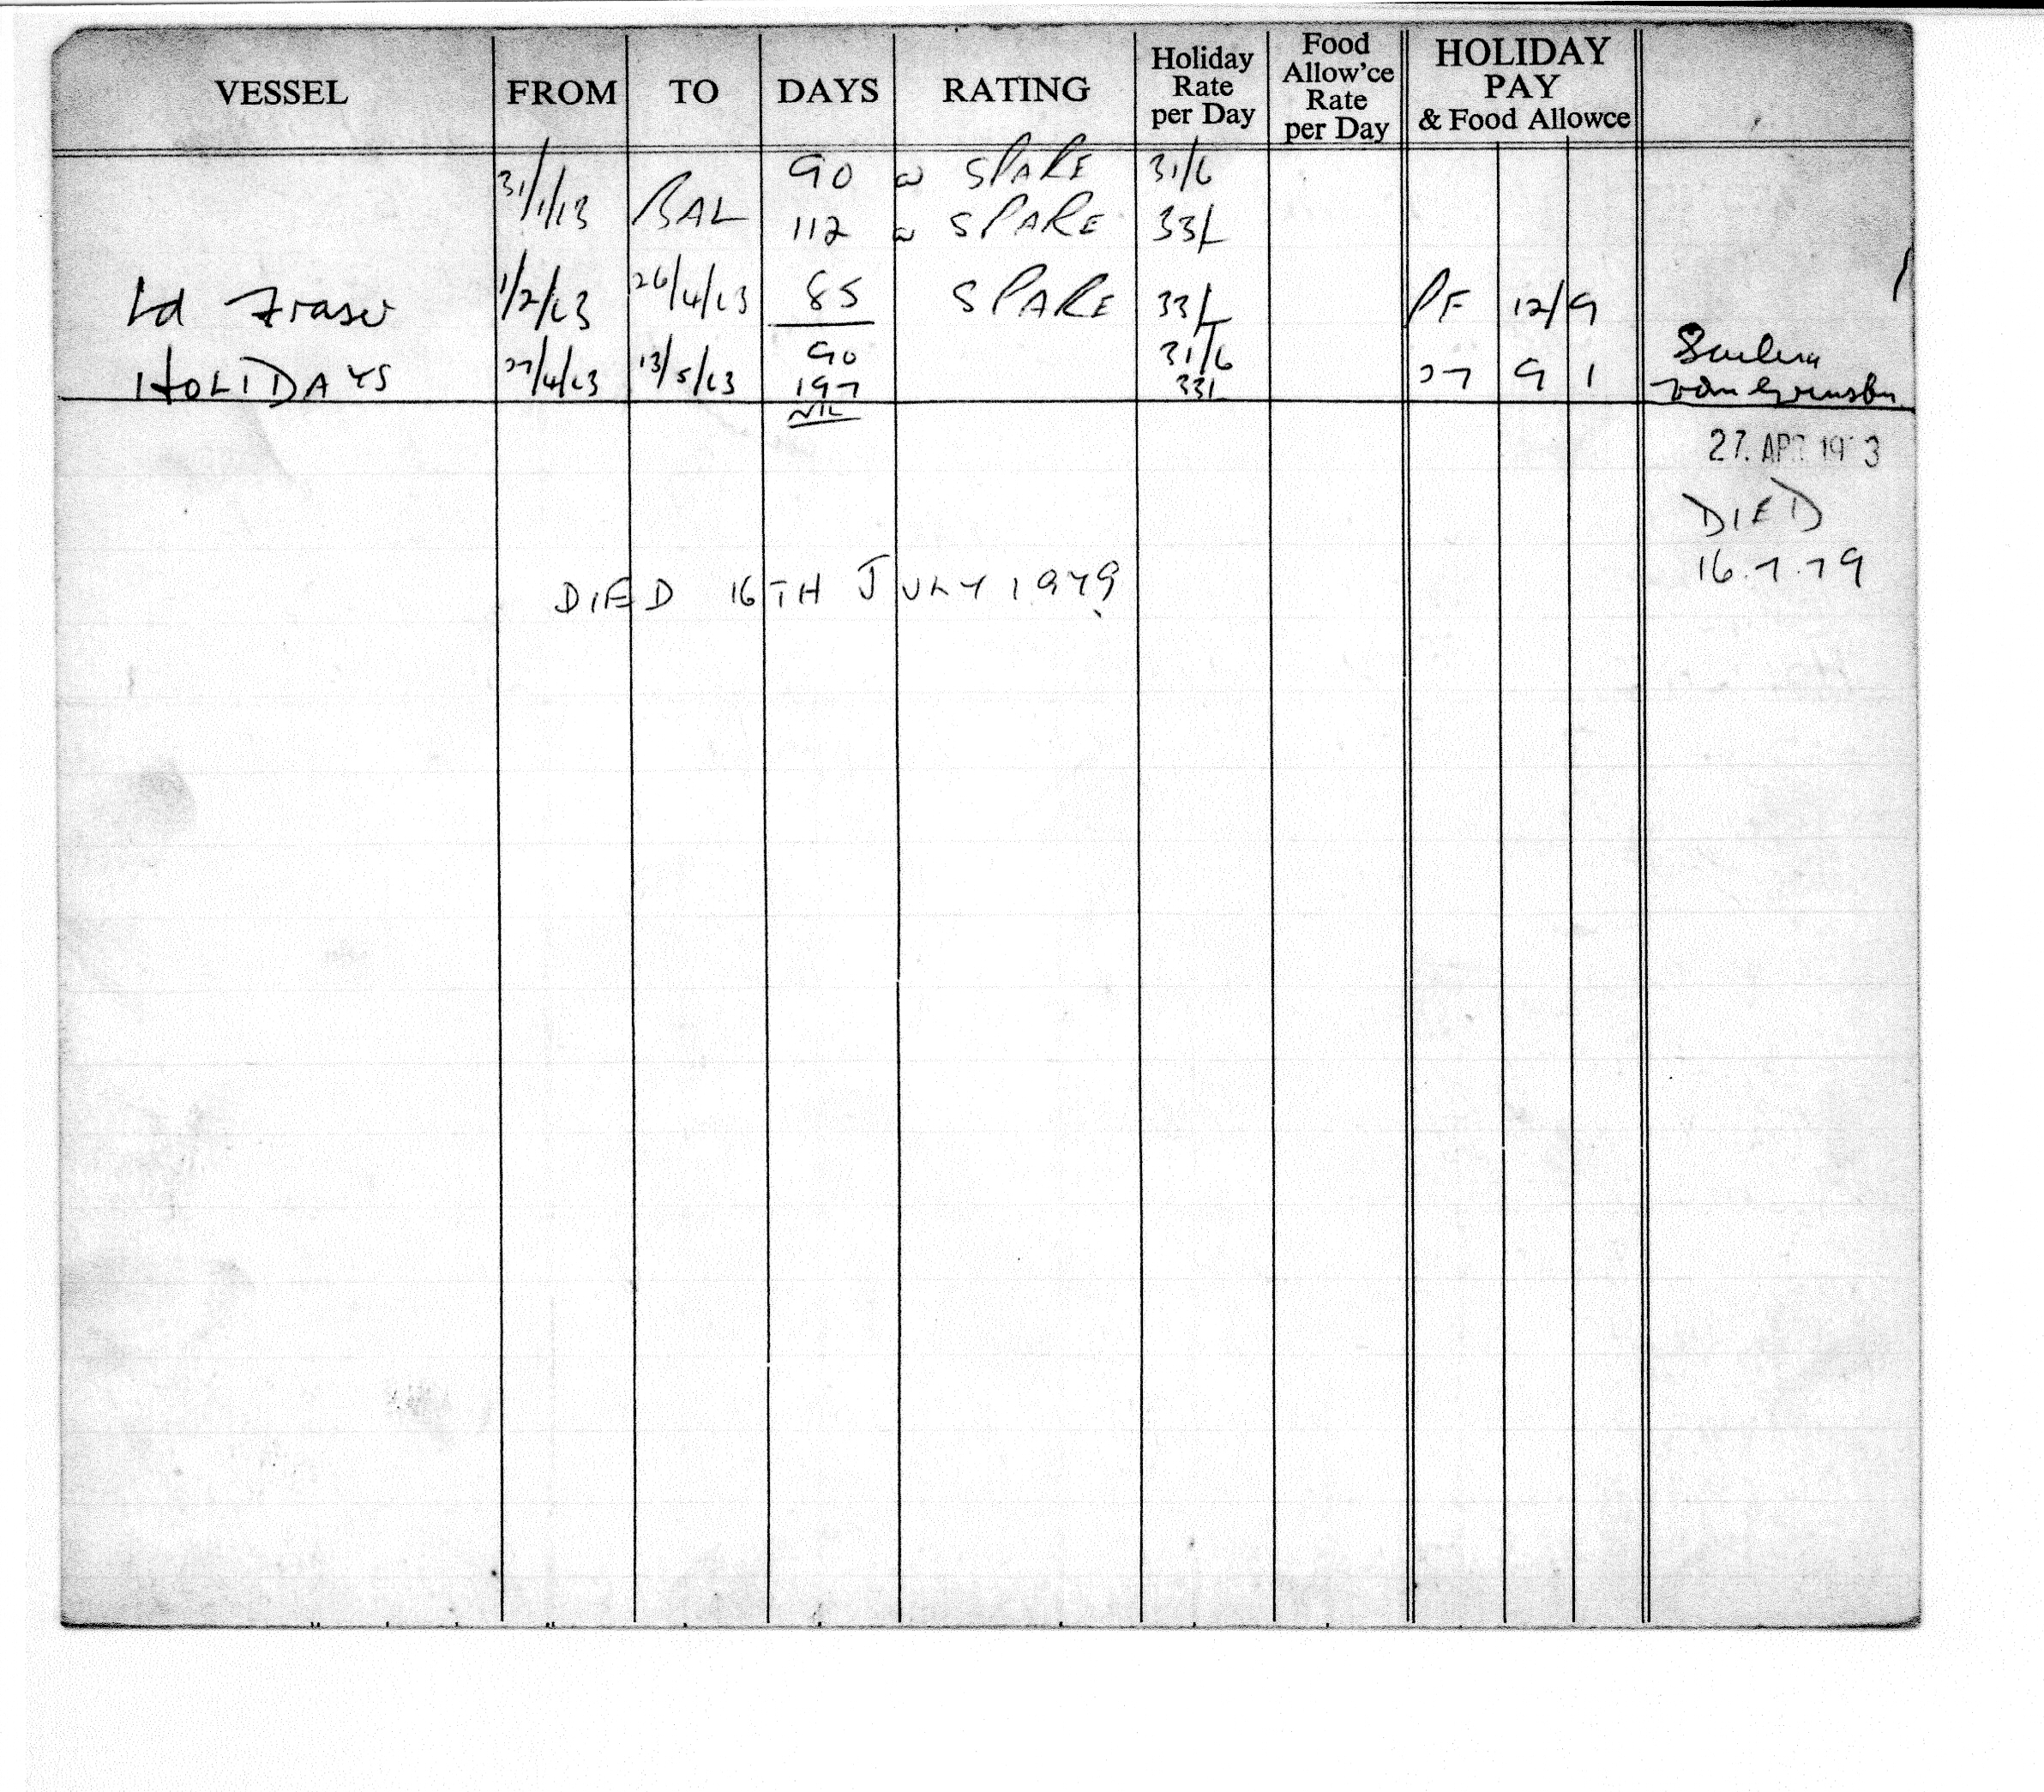 VESSEL FROM TO DAYS RATING Holiday Rate per Day Food Allow'ce Rate per Day HOLIDAY PAY & Food Allowce
31/1/63 BAL 90 @ SPARE 31/6
112 @ SPARE 33/-
Ld Fraser 1/2/63 26/4/63 85 SPARE 33/- PF 12/9
HOLIDAYS 27/4/63 13/5/63 90 31/6 27 9 1
197 33/-
NIL
27. APR 1963
DIED
16.7.79
DIED 16TH JULY 1979